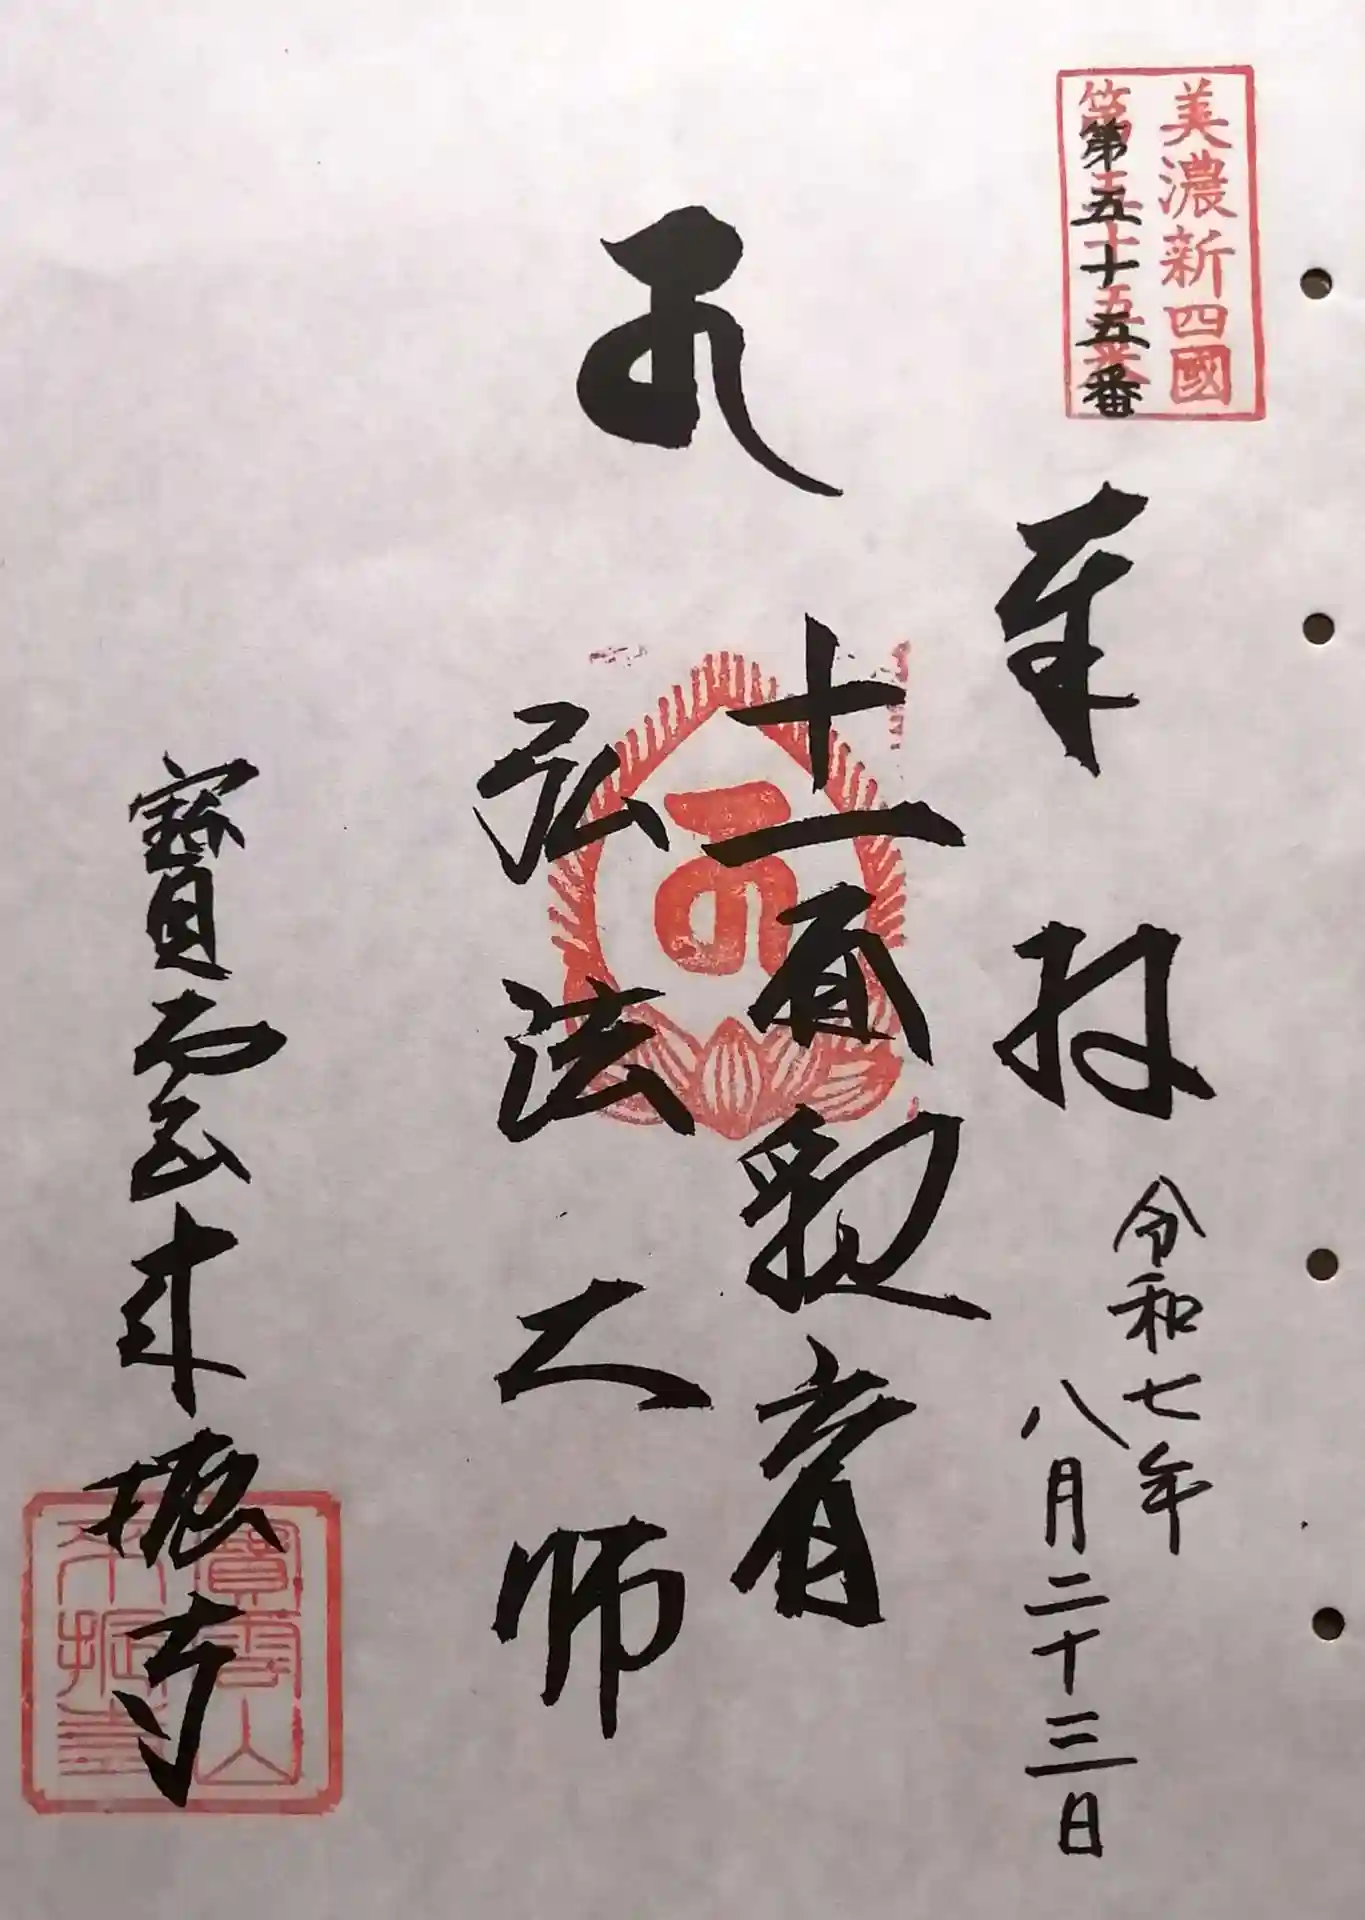 美濃新四國
第五十五番
奉拝
令和七年
八月二十三日
十一面観音
弘法大師
寶雲来振寺
寶雲山
来振寺